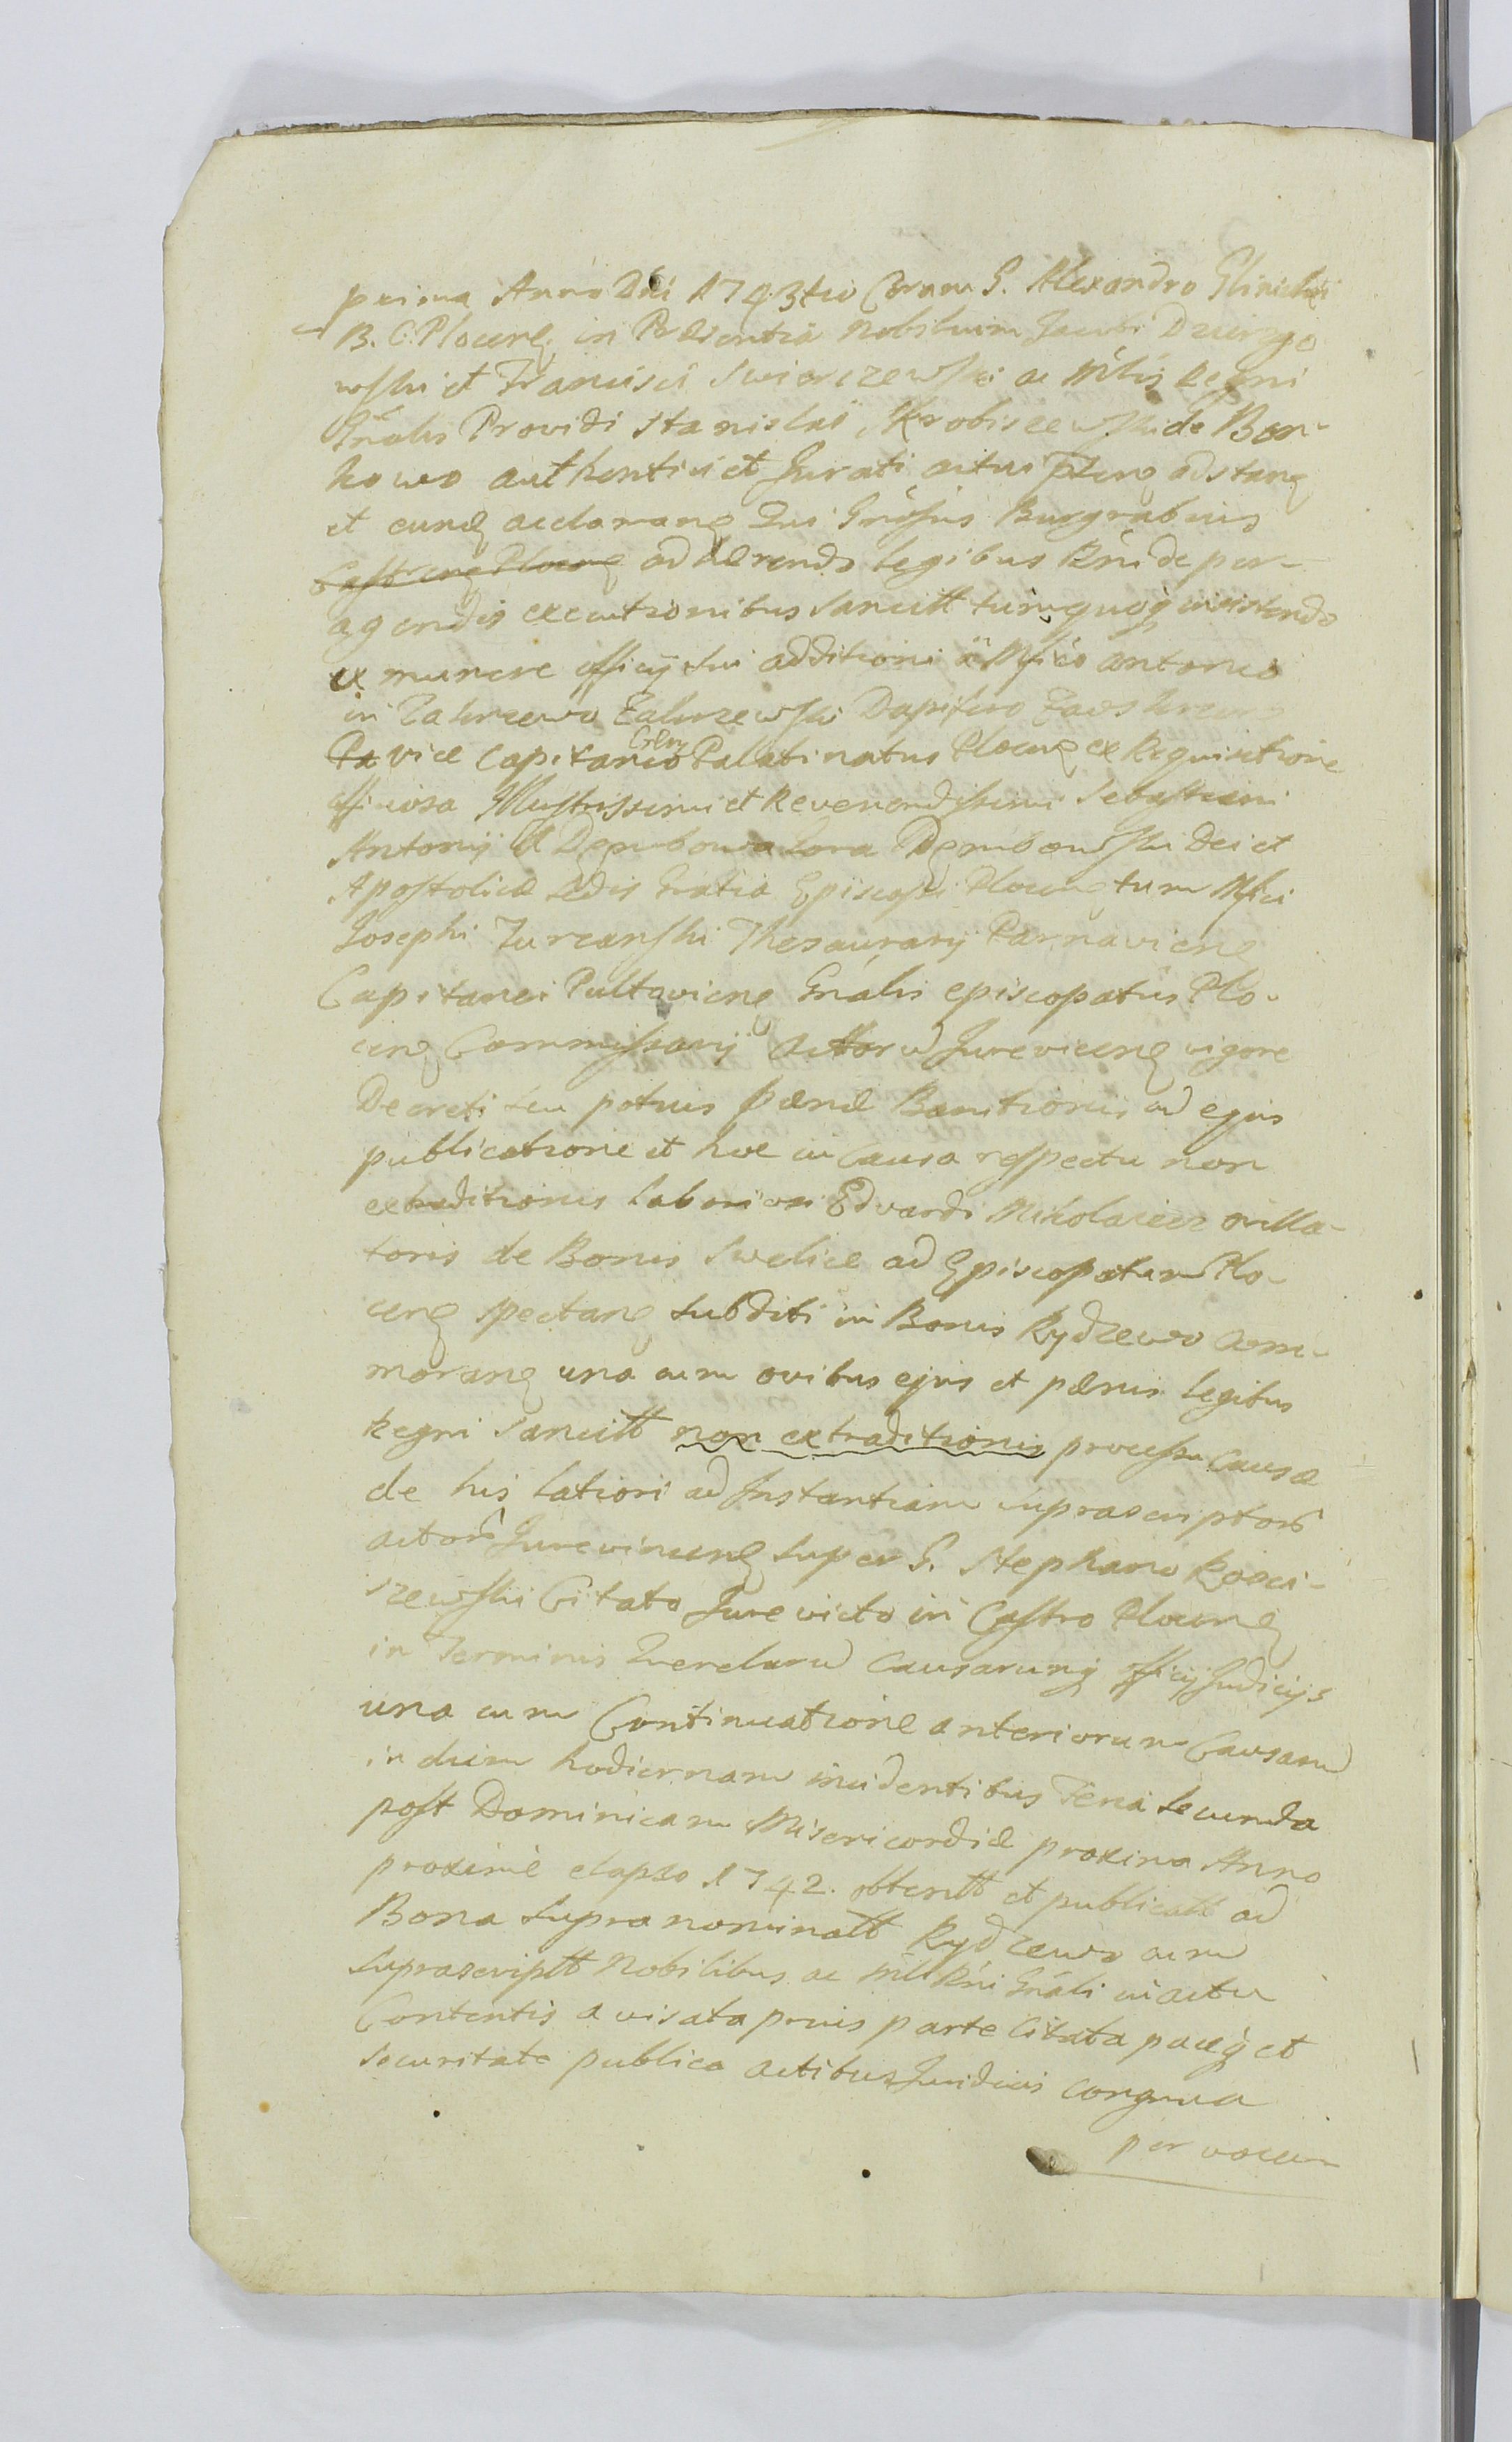 prima Anno Dni 1743tio Coram G. Alexandro Glinicki
B. C. Plocen in Præsentia Nobilium Jacobi Dzierzgo
wski et Francisci Swierczewski ac Mlis Regni
Gnalis Providi Stanislai de Bor-
kowo authentici et Jurati actui pten adstan
et eund acclaman Qui Gnosus Burgrabius
Castren Plocen adhærendo legibus Rni de per-
agendis executionibus sancitt tum quoq insistendo
ex munere officij sui additioni a Mfico Antonio
in Zakrzewo Zakrzewski Dapifero Zawskrzens
Pa vice Capitaneo Gen Palatinatus Plocen ex Requisitione
officiosa Illustrissimi et Reverendissimi Sebastiani
Antonij a Dembowa Gora Dembowski Dei et
Apostolicæ Sedis Gratia Episcopi Plocen tum Mfici
Josephi Turcanski Thesaurarij Parnavien
Capitanei Pultovien Gnalis episcopatus Plo-
cen Commissarij Actoru Jurevicen vigore
Decreti seu potius pænæ Banitionis ad ejus
publicatione et hoc in Causa respectu non
extraditionis laboriosi Edvardi Mikolaiewicz
toris de Bonis Swelice ad Episcopatum Plo-
cen spectan subditi in Bonis Rydzewo com-
moran una cum ovibus ejus et pænis legibus
Regni sancitt non extraditionis processu Causæ
de his latiori ad Instantiam suprascriptor
actor Jurevincen super G. Stephano Rosci-
szewski Citato Jure victo in Castro Plocen
in Terminis Querelaru Causarumq officij Judicijs
una cum Continuatione anteriorum Causaru
in diem hodiernam incidentibus Feria secunda
post Dominicam Misericordiæ proxima Anno
proxime elapso 1742. obtentt et publicatt ad
Bona supra nominatt Rydzewo cum
suprascriptt Nobilibus ac Mli Rni Gnali in actu
Contentis avisata prius parte Citata paceq et
securitate publica actibus Juridicis congrua
per vocem